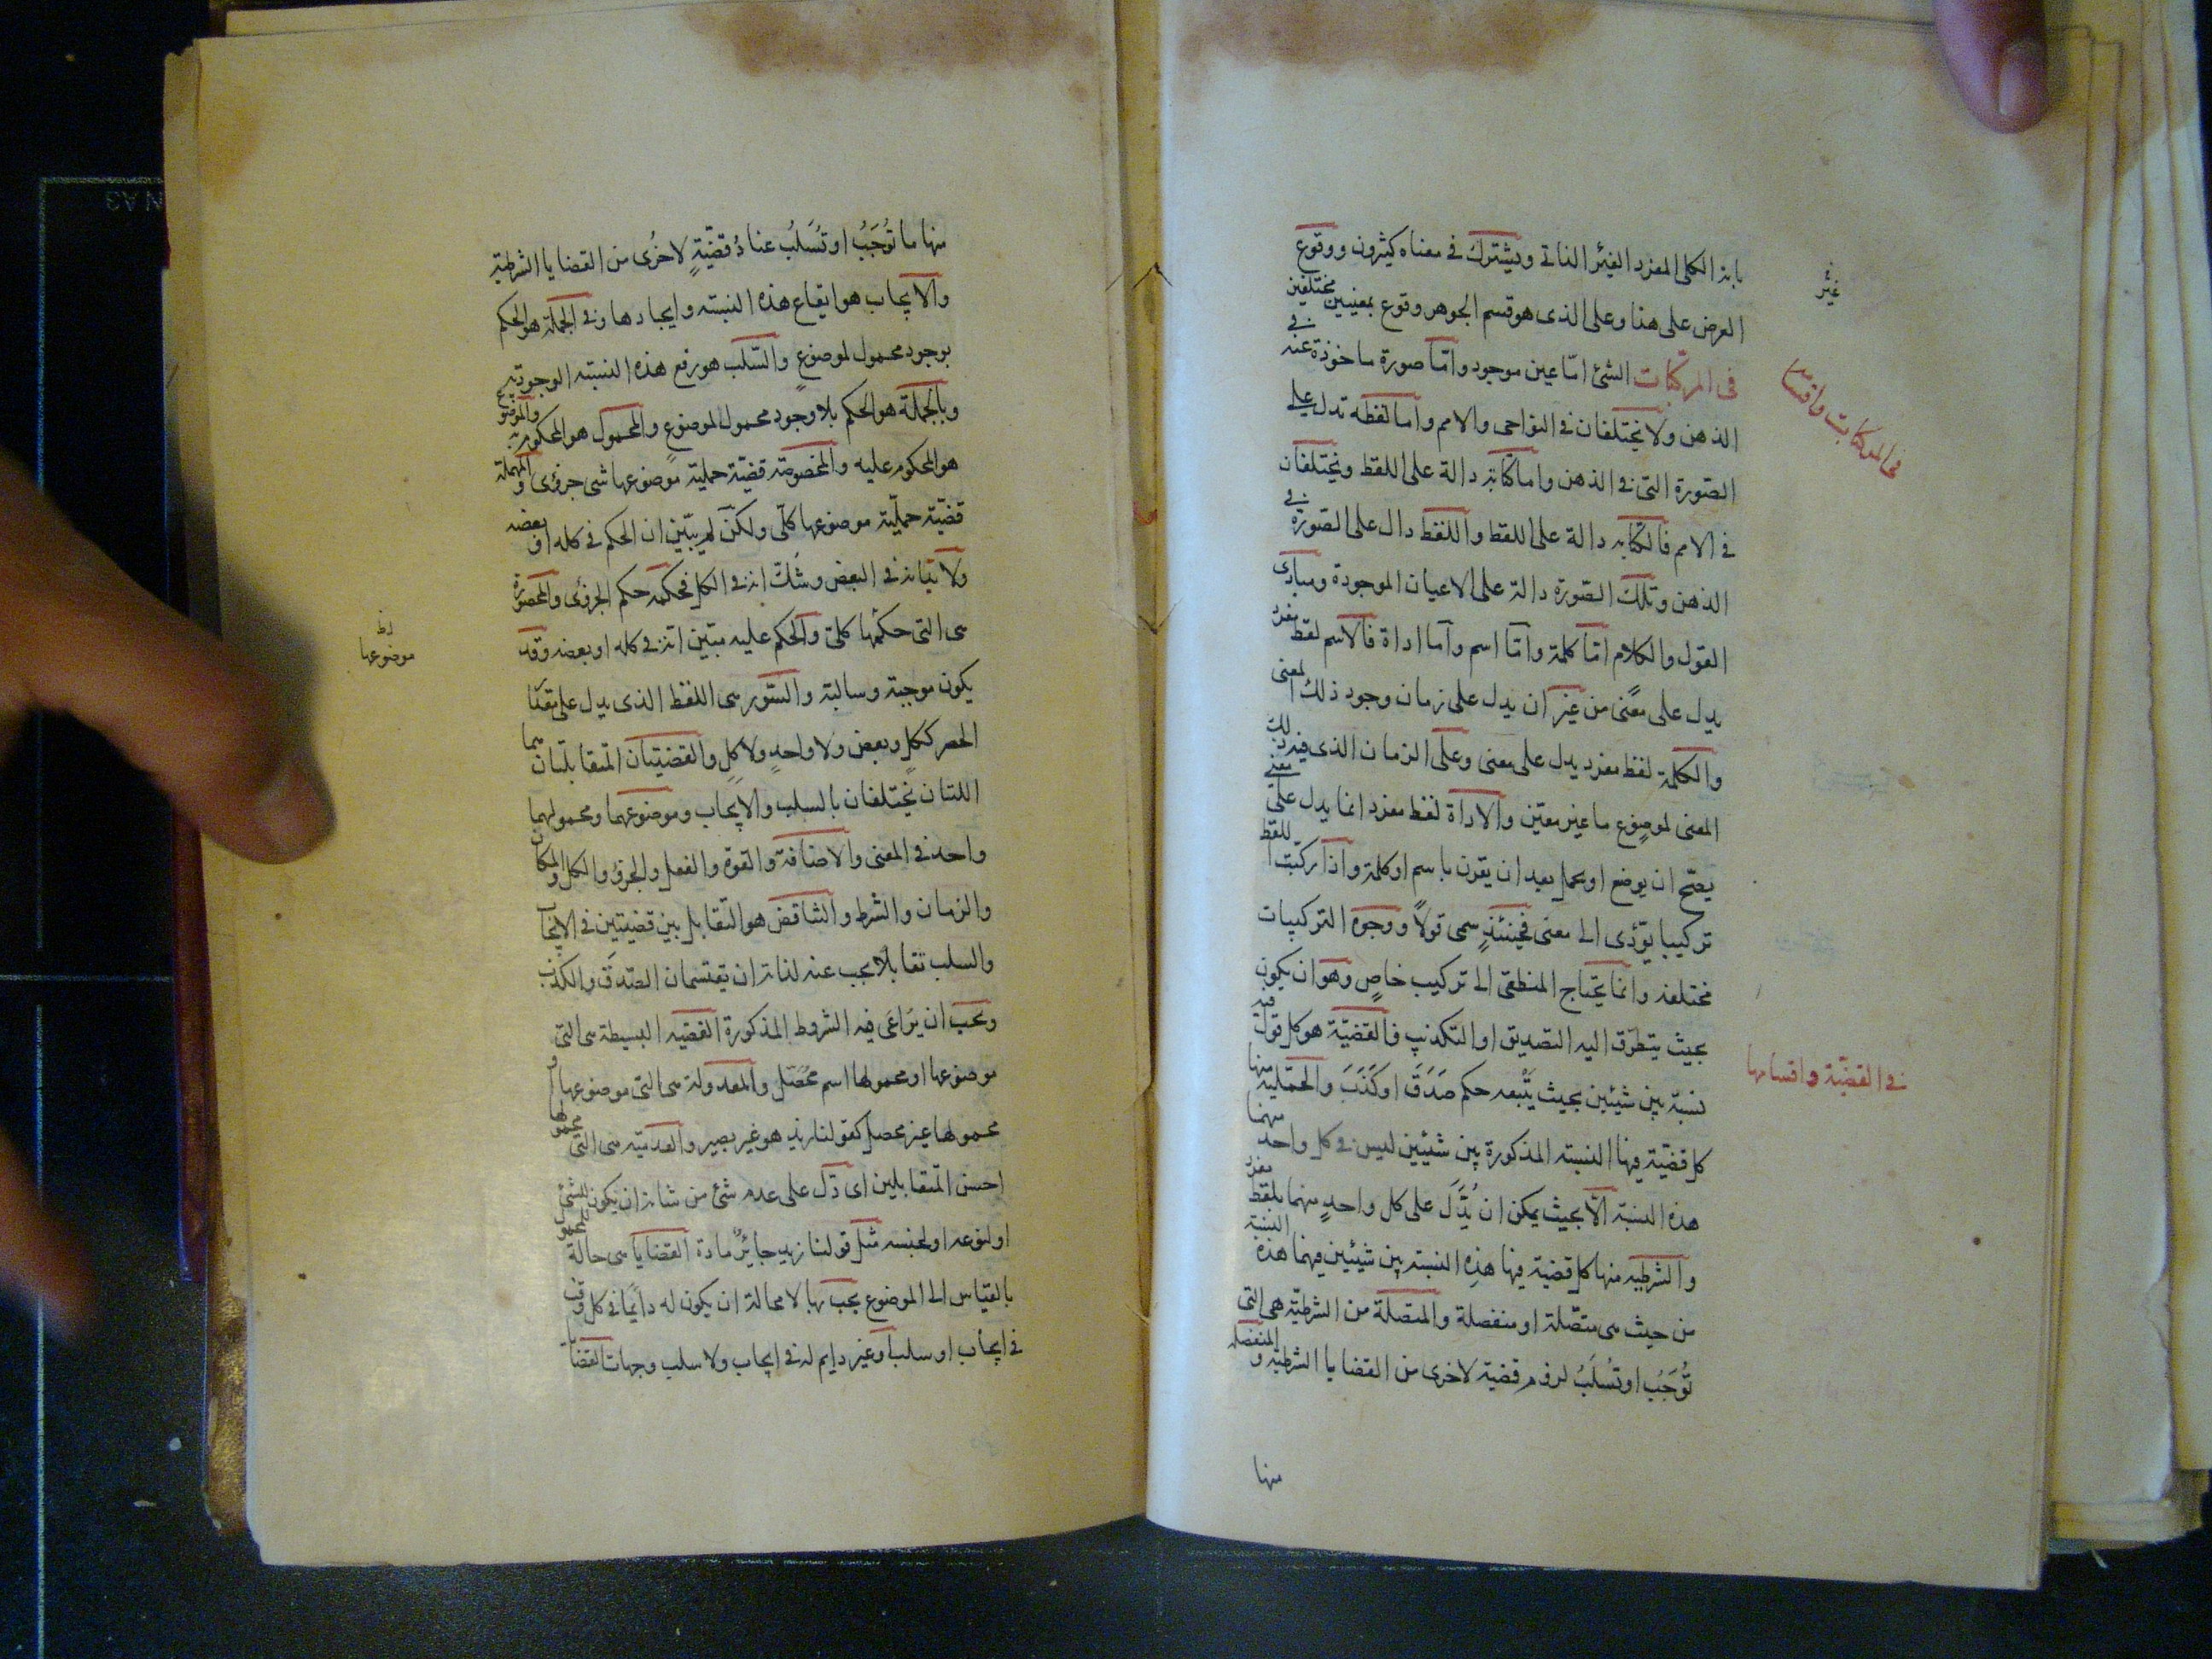 بانه الكلى المفرد الغير الذاتى ويشترك فى معناه كثيرون ووقوع
غيره
العرض على هذا وعلى الذى هو قسم الجوهر وقوع بمعنيين مختلفين
فى المركبات الشئ اما عين موجود واما صورة ماخوذة عنه فى
فى المركبات واقسامه
الذهن ولا يختلفان فى النواحى والامم واما لفظه تدل على
الصورة التى فى الذهن واما كتابة دالة على اللفظ ويختلفان
فى الامم فالكتابه دالة على اللفظ واللفظ دال على الصورة فى
الذهن وتلك الصورة دالة على الاعيان الموجودة ومبادى
القول والكلام اما كلمة واما اسم واما اداة فالاسم لفظ مفرد
يدل على معنى من غير ان يدل على زمان وجود ذلك المعنى
والكلمة لفظ مفرد يدل على معنى وعلى الزمان الذى فيه ذلك
المعنى لموضوع ما غير معين والاداة لفظ مفرد انما يدل على معنى
يصح ان يوضع او يحمل بعد ان يقرن باسم او كلمة واذا ركبت اللفظ
تركيبا يؤدى الى معنى فحينئذٍ سمى قولاً ووجوه التركيبات
مختلفه وانما يحتاج المنطقى الى تركيب خاصٍ وهو ان يكون
بحيث يتطرق اليه التصديق او التكذيب فالقضيّة هو كل قول فيه
فى القضيّة واقسامها
نسبة بين شيئين بحيث يتبعه حكم صَدَقَ او كَذَبَ والحمليّة منها
كل قضيّة فيها النسبة المذكورة بين شيئين ليس فى كل واحد منهما
هذه النسبة الا بحيث يمكن ان يُدَلَّ على كل واحدٍ منهما بلفظ مفرد
والشرطيه منها كل قضية فيها هذِه النسبته بين شيئين فيهما هذه النسبة
من حيث هى متّصلة او منفصلة والمتصلة من الشرطيّه هى التى
تُوجَبُ او تُسلَبُ لزوم قضية لاخرى من القضايا الشرطيّه والمنفصله
منها
منها ما تُوجَبُ او تُسَلبُ عنادُ قضيّةٍ لاخرُى من القضايا الشرطيّة
والايجاب هو ايقاع هذه النسبته وايجادها وفى الجملة هو الحكم
بوجود محمول لموضوعٍ والسّلب هو رفع هذه النسبته الوجوديّه
وبالجملة هو الحكم بلا وجود محمول لموضوعٍ والمحمول هو المحكوم به والموضوع
هو المحكوم عليه والمخصوصة قضيّة حمليّة موضوعها شى جزؤى والمهملة
قضيّة حمليّة موضوعها كلّى ولكنّ لم يبيّن ان الحكم فى كله او بعضه
ولا بدّ انه فى البعض وشَكّ انه فى الكل فحكمه حكم الجزؤى والمحصورة
هى التى حكمها كلىّ والحكم عليه مبيّن انّه فى كله او بعضه وقد
موضوعها
يكون موجبة وسالبة والسّور هى اللفظ الذى يدل على مقدار
الحصر ككلٍ وبعض ولا واحدٍ ولا كلٍ والقضيّتان المتقابلتان هما
اللتان تختلفان بالسلب والايجاب وموضوعهما ومحمولهما
واحد فى المعنى والاضافة والقوة والفعل والجزؤ والكل والمكان
والزمان والشرط والتناقض هو التقابل بين قضيتين فى الايجاب
والسلب تقابلا يجب عنه لذاته ان يقتسمان الصدق والكذب
ويجب ان يراعى فيه الشروط المذكورة القضيه البسيطة هى التى
موضوعها او محمولها اسم محُصّل والمعدولة هى التى موضوعها او
محمولها غير محصل كقولنا زيد هو غير بصير والعدميّه هى التى محمولها
احسن المتقابلين اى دّل على عدم شئ من شانه ان يكون للشئ
او لنوعه او لجنسه مثل قولنا زيد جائرٌ مادة القضايا هى حالة للمحمول
بالقياس الى الموضوع يجب بها لا محالة ان يكون له دائما فى كل وقت
فى ايجاب او سلب او غير دايم له فى ايجاب ولا سلب وجهات القضايا